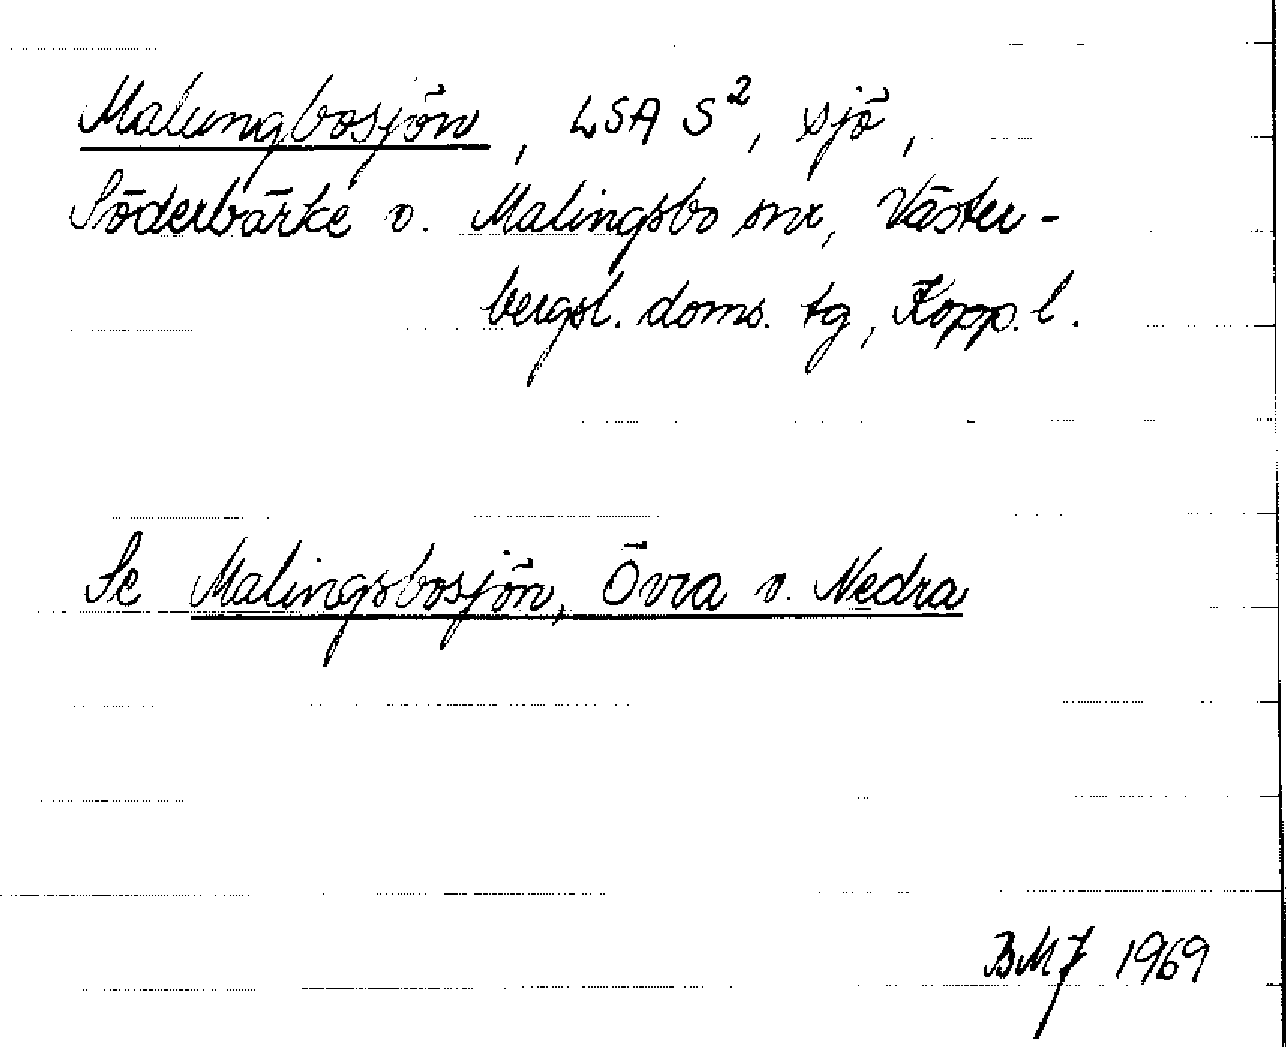 Malungbosjön, LSA S², sjö,
Söderbärke o. Malingsbo snr, Väster-
bergsl. doms. tg, Kopp. l.
Se Malingsbosjön, Övra o. Nedra
BMJ 1969